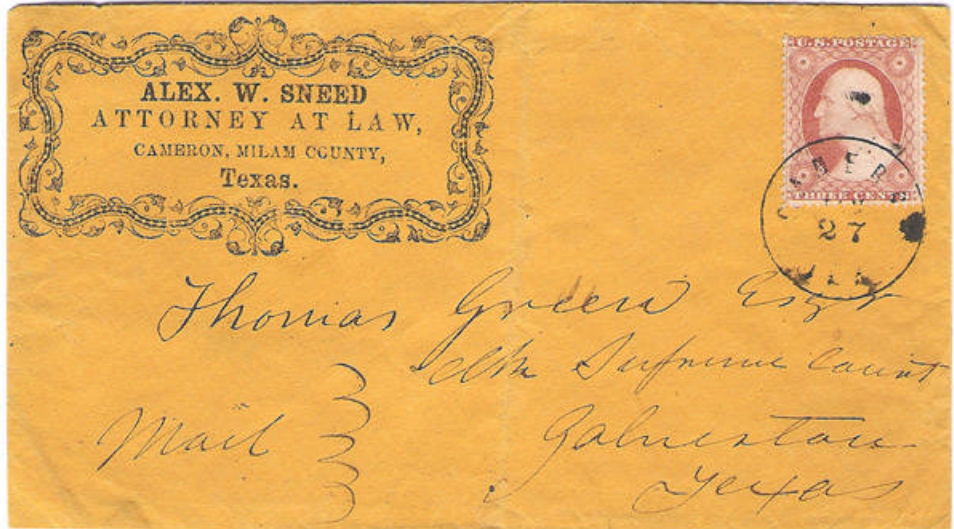 ALEX. W. SNEED
ATTORNEY AT LAW,
CAMERON, MILAM COUNTY,
Texas.
U.S. POSTAGE
THREE CENTS
27
Thomas Green Esqr
Clk Supreme Court
Mail
Galveston
Texas